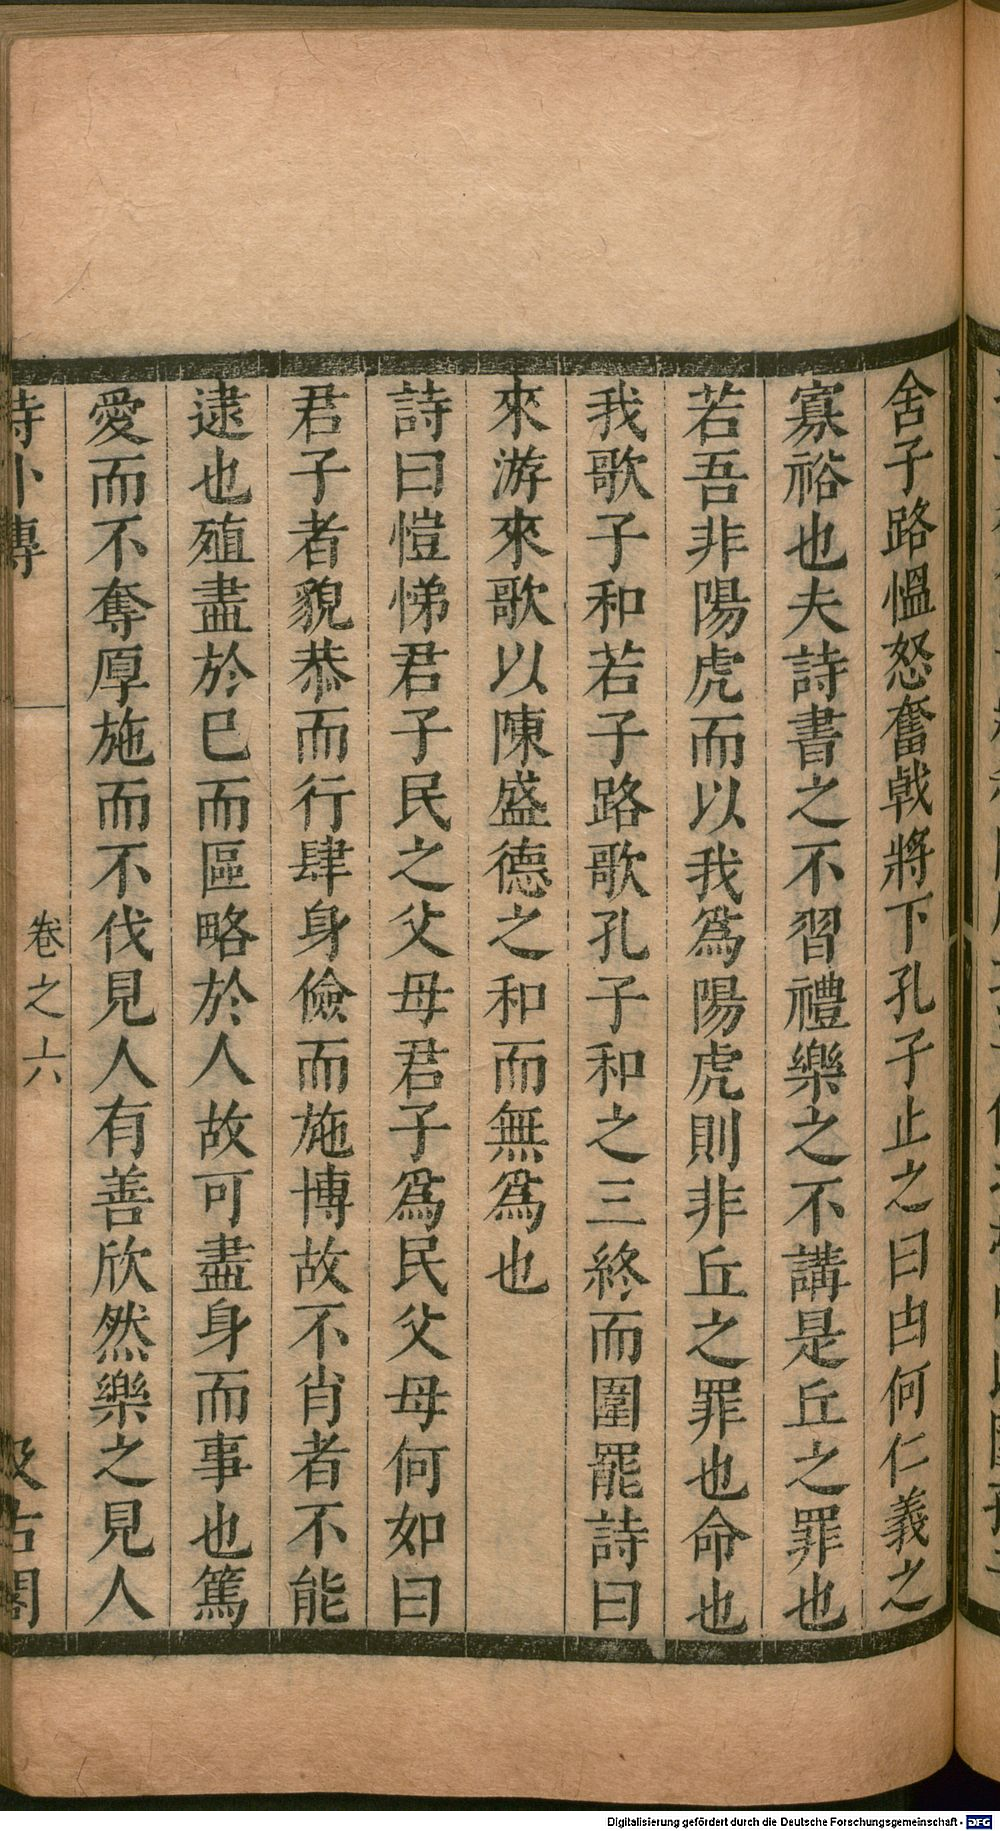 舍子路慍怒奮戟將下孔子止之曰由何仁義之
寡裕也夫詩書之不習禮樂之不講是丘之罪也
若吾非陽虎而以我爲陽虎則非丘之罪也命也
我歌子和若子路歌孔子和之三終而圍罷詩曰
來游來歌以陳盛德之和而無爲也
詩曰愷悌君子民之父母君子爲民父母何如曰
君子者貌恭而行肆身儉而施博故不肖者不能
逮也殖盡於巳而區略於人故可盡身而事也篤
愛而不奪厚施而不伐見人有善欣然樂之見人
詩外傳 卷之六 汲古閣
Digitalisierung gefördert durch die Deutsche Forschungsgemeinschaft - DFG